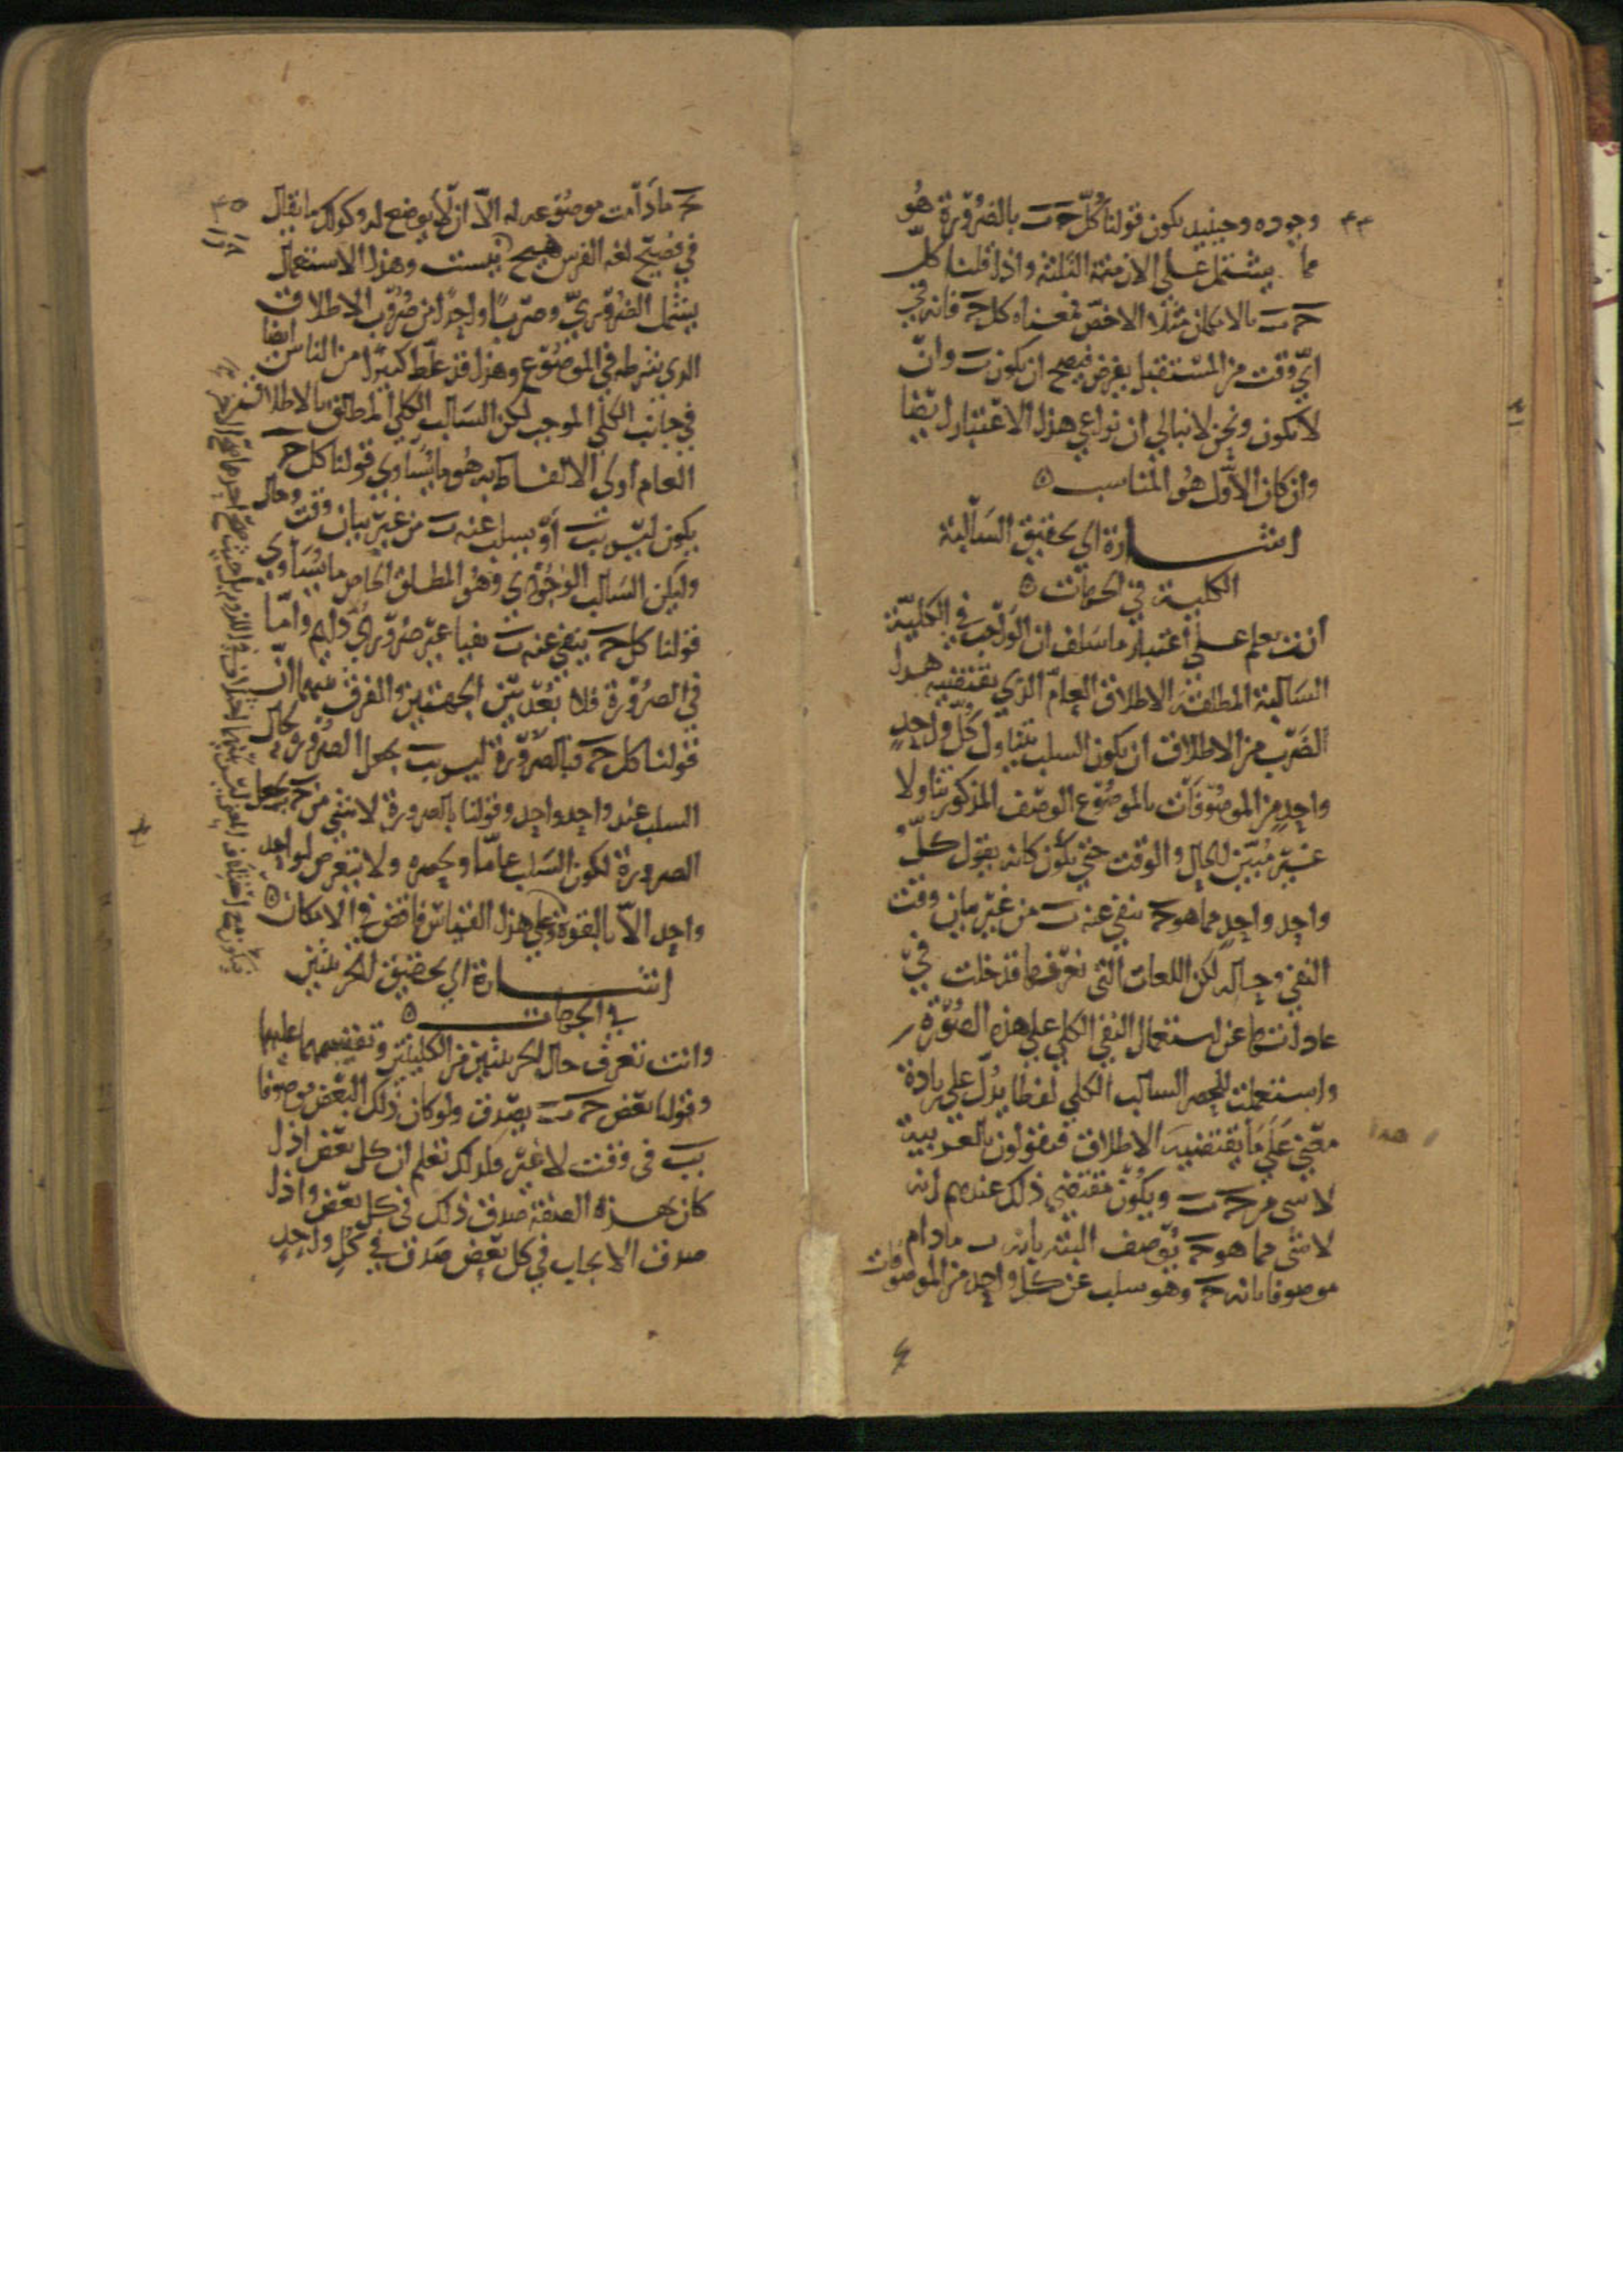 وجوده وحينيذ يكون قولنا كل حَ بَ بالضرورة هو
مما يشتمل على الازمنة الثلثة واذا قلنا كل
حَ بَ بالامكان مثلا الاخص فمعناه كل حَ فانه في
اي وقت من المستقبل يفرض فيصح ان يكون بَ وان
لا يكون ونحن لا نبالي ان نراعي هذا الاعتبار ايضا
وان كان الاول هو المناسب
اشارة الى تحقيق السالبة
الكلية في الجهات
انت تعلم على اعتبار ما سلف ان الواجب في الكلية
السالبة المطلقة الاطلاق العام الذي يقتضيه هذا
الضرب من الاطلاق ان يكون السلب يتناول كل واحد
واحد من الموصوفات بالموضوع الوصف المذكور تناولا
غير مبين الحال والوقت حتى يكون كانه يقول كل
واحد واحد مما هو حَ ينفي عنه بَ من غير بيان وقت
النفي وحاله لكن اللغات التي نعرفها قد خلت في
عاداتها عن استعمال النفي الكلي على هذه الصورة
واستعملت للحصر السالب الكلي لفظا يدل على زيادة
معنى على ما يقتضيه الاطلاق فيقولون بالعربية
لا شي من حَ بَ ويكون مقتضي ذلك عندهم انه
لا شي مما هو حَ يوصف البتة بانه بَ ما دام
موصوفا بانه حَ وهو سلب عن كل واحد من الموصوفات
بحَ ما دامت موضوعه له الا ان لا يوضع له وكذلك ما يقال
في فصيح لغه الفرس هيچ حَ بَ نيست وهذا الاستعمال
يشمل الضروري وضربا واحدا من ضروب الاطلاق
الذي شرطه في الموضوع وهذا قد غلط كثيرا من الناس ايضا
في جانب الكلي الموجب لكن السالب الكلي المطلق بالاطلاق
العام اولى الالفاظ به هو ما يساوي قولنا كل حَ
يكون ليس بَ او يسلب عنه بَ من غير بيان وقت وحال
وليكن السالب الوجودي وهو المطلق الخاص ما يساوي
قولنا كل حَ ينفي عنه بَ نفيا غير ضروري دايم واما
في الضرورة فلا بعد بين الجهتين والفرق بينهما ان
قولنا كل حَ فبالضرورة ليس بَ يجعل الضرورة لحال
السلب عند واحد واحد وقولنا بالضرورة لا شي من حَ بَ يجعل
الضرورة لكون السلب عاما ولحصره ولا يتعرض لواحد
واحد الا بالقوة وعلى هذا القياس فاقض في الامكان
اشارة الى تحقيق الجزئيتين
في الجهات
وانت تعرف حال الجزئيتين من الكليتين وتقيسهما عليهما
وقولنا بعض حَ بَ يصدق ولو كان ذلك البعض موصوفا
ببَ في وقت لا غير وكذلك تعلم ان كل بعض اذا
كان بهذه الصفة صدق ذلك في كل بعض واذا
صدق الايجاب في كل بعض صدق في كل واحد